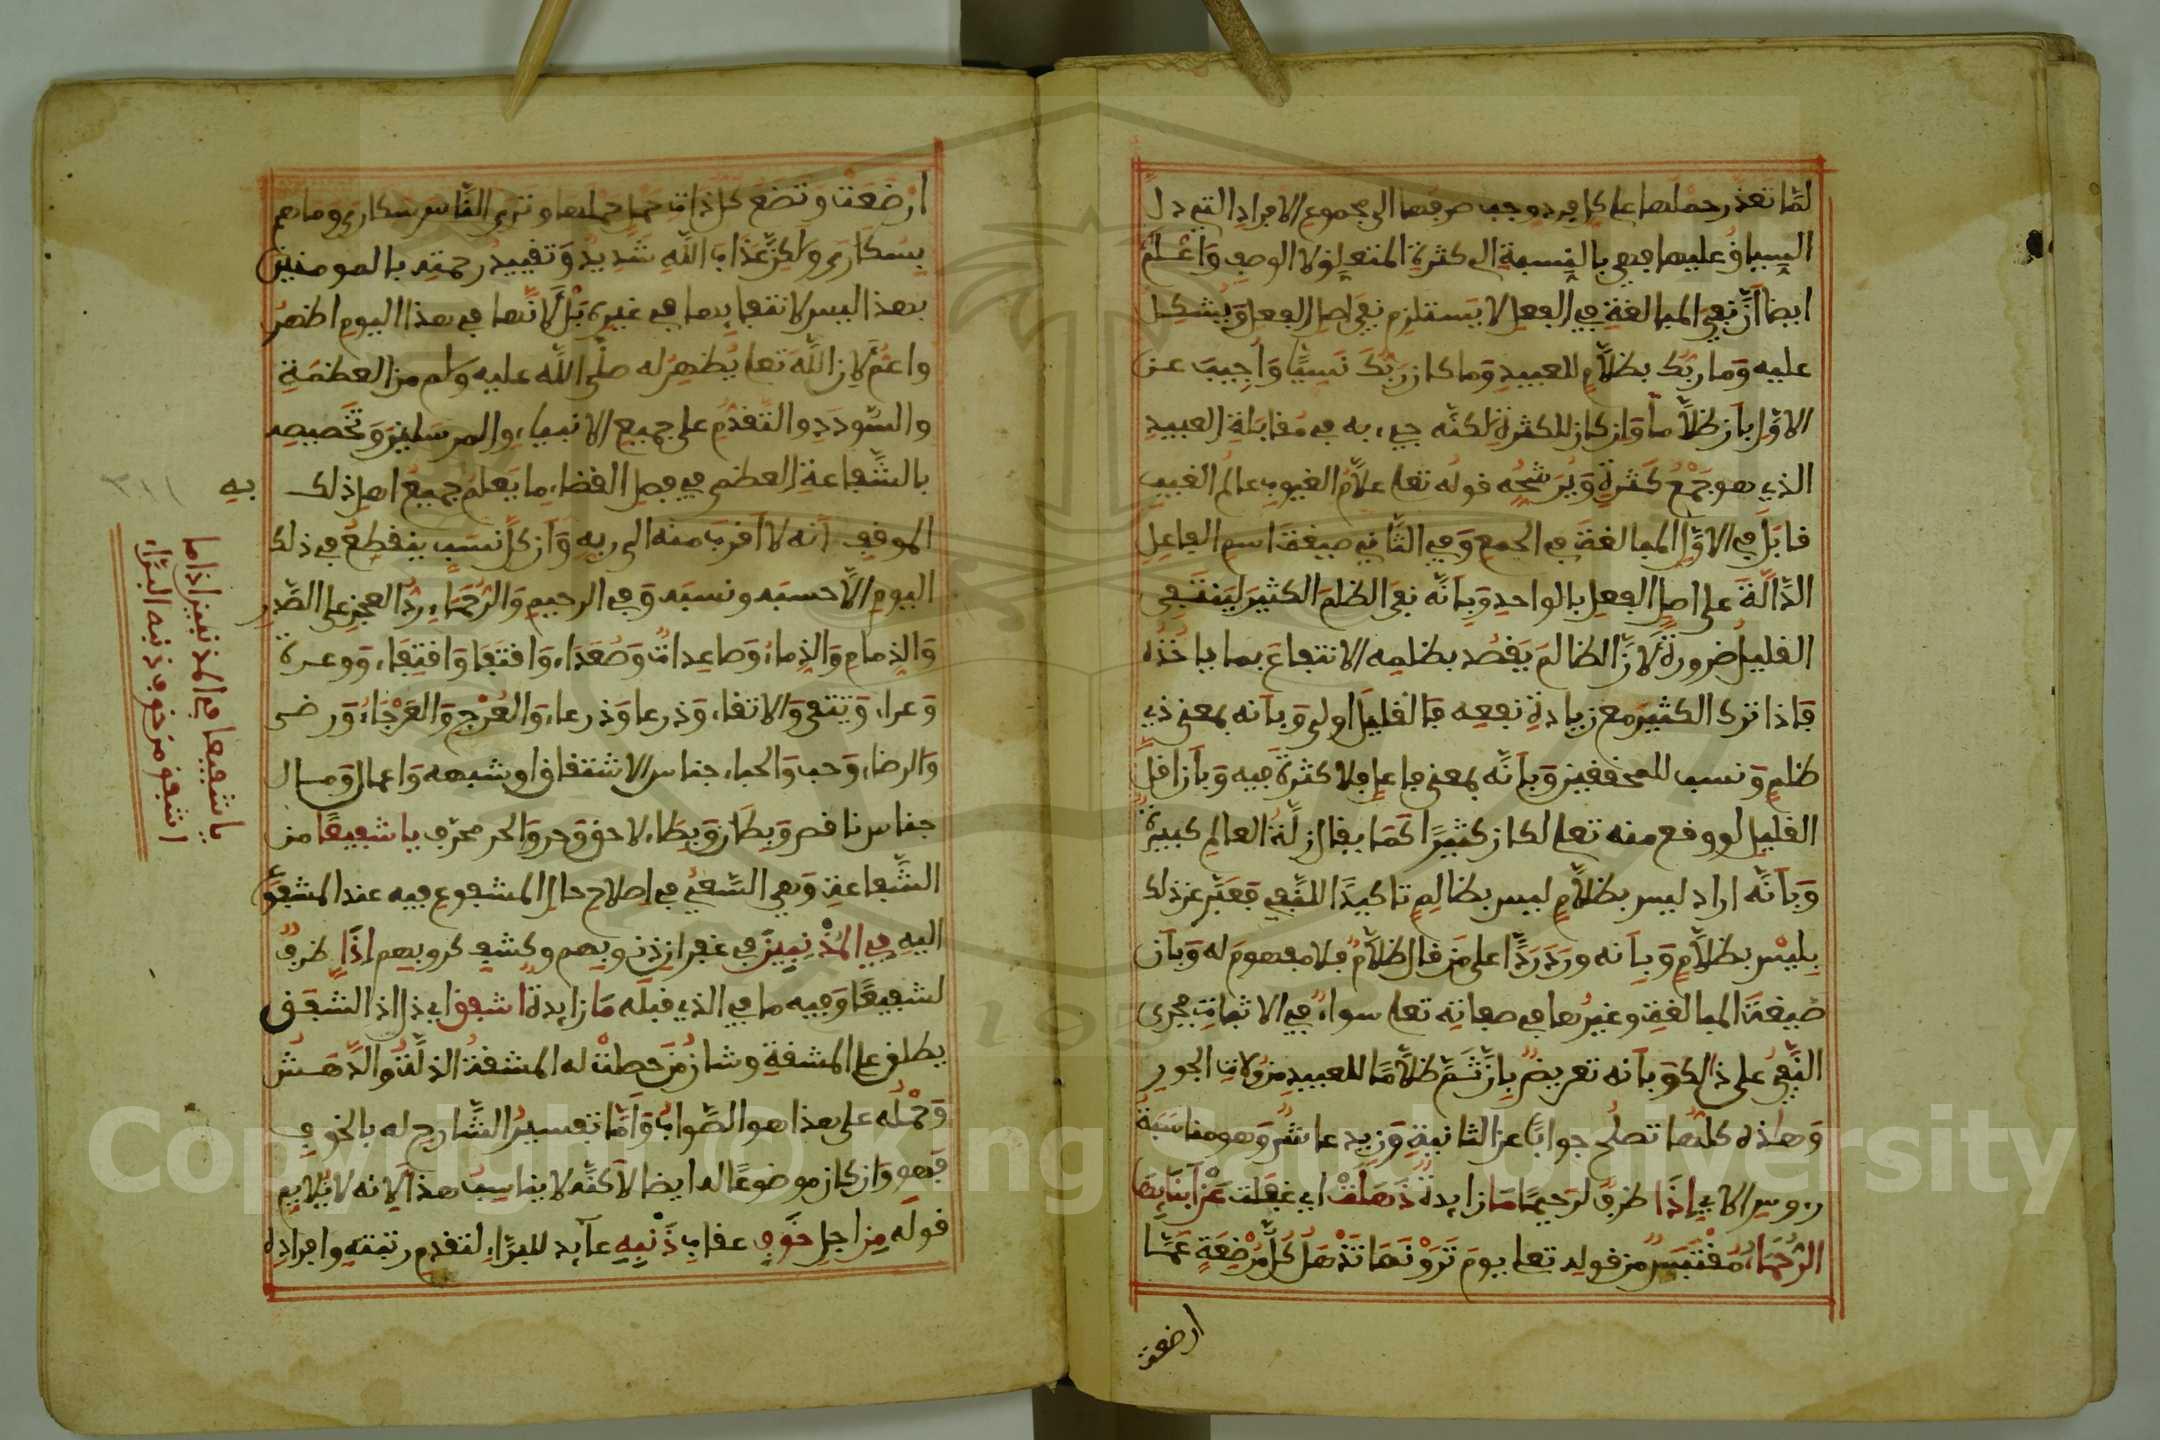 لما تعذر حملها على كل فرد وجب صرفها الى مجموع الافراد التي دل
السياق عليها فهي بالنسبة الى كثرة المتعلق لا الوصف واعلم
ايضا ان نفي المبالغة في الفعل لا يستلزم نفي اصل الفعل ويشكل
عليه وما ربك بظلام للعبيد وما كان ربك نسيا واجيب عن
الاول بان ظلاما وان كان للكثرة لكنه جيء به في مقابلة العبيد
الذي هو جمع كثرة ويرشحه قوله تعلى علام الغيوب عالم الغيب
قابل في الاول المبالغة في الجمع وفي الثاني صيغة اسم الفاعل
الدالة على اصل الفعل بالواحد وبانه نفي الظلم الكثير لينتفي
القليل ضرورة لان الظالم يقصد بظلمه الانتفاع بما ياخذه
فاذا ترك الكثير مع زيادة نفعه فالقليل اولى وبانه بمعنى ذي
ظلم ونسب للمحققين وبانه بمعنى فاعل فلا كثرة فيه وبان اقل
القليل لو وقع منه تعلى لكان كثيرا كما يقال زلة العالم كبيرة
وبانه اراد ليس بظلام ليس بظالم تاكيدا للنفي فعبر عن ذلك
بليس بظلام وبانه ورد ردا على من قال ظلام فلا مفهوم له وبان
صيغة المبالغة وغيرها في صفاته تعلى سواء في الاثبات فجرى
النفي على ذلك وبانه تعريض بان ثم ظلاما للعبيد من ولات الجور
وهذه كلها تصلح جوابا عن الثانية وزيد عاشر وهو مناسبة
رءوس الاي اذا ظرف لرحيما ما زايدة ذهلت اي غفلت عن ابنايها
الرحماء مقتبس من قوله تعلى يوم ترونها تذهل كل مرضعة عما
ارضعت
ارضعت وتضع كل ذات حمل حملها وترى الناس سكارى وما هم
بسكارى ولكن عذاب الله شديد وتقييد رحمته بالمومنين
بهذا ليس لانتفايها في غيره بل لانها في هذا اليوم اظهر
واعم لان الله تعلى يظهر له صلى الله عليه وسلم من العظمة
والسودد والتقدم على جميع الانبياء والمرسلين وتخصيصه
بالشفاعة العظمى في فصل القضاء ما يعلم جميع اهل ذلك
الموقف انه لا اقرب منه الى ربه وان كل نسب ينقطع في ذلك
اليوم الا حسبه ونسبه وفي الرحيم والرحماء رد العجز على الصدر
والذمام والذماء وصاعدات وصعداء واقتفا واقتفاء ووعرة
وعراء وينتفي والانتفاء وذرعا وذرعاء والعرج والعرجاء ورضى
والرضاء وحب والحباء جناس الاشتقاق او شبهه واعمال ومال
جناس ناقص وبطان وبطاء لاحق وحر والحر محرف يا شفيعا من
الشفاعة وهي السعي في اصلاح حال المشفوع فيه عند المشفوع
اليه في المذنبين في غفران ذنوبهم وكشف كروبهم اذا ظرف
لشفيعا وفيه ما في الذي قبله ما زايدة اشفق اي ذل اذ الشفق
يطلق على المشقة وشان من حصلت له المشقة الذلة والدهش
وحمله على هذا هو الصواب واما تفسير الشارح له بالخوف
فهو وان كان موضوعا له ايضا لاكنه لا يناسب هذا لانه لا يلايم
قوله من اجل خوف عقاب ذنبه عايد للبراء لتقدم رتبته وافراده
به
يا شفيعا في المذنبين اذا ما
اشفق من خوف ذنبه البراء